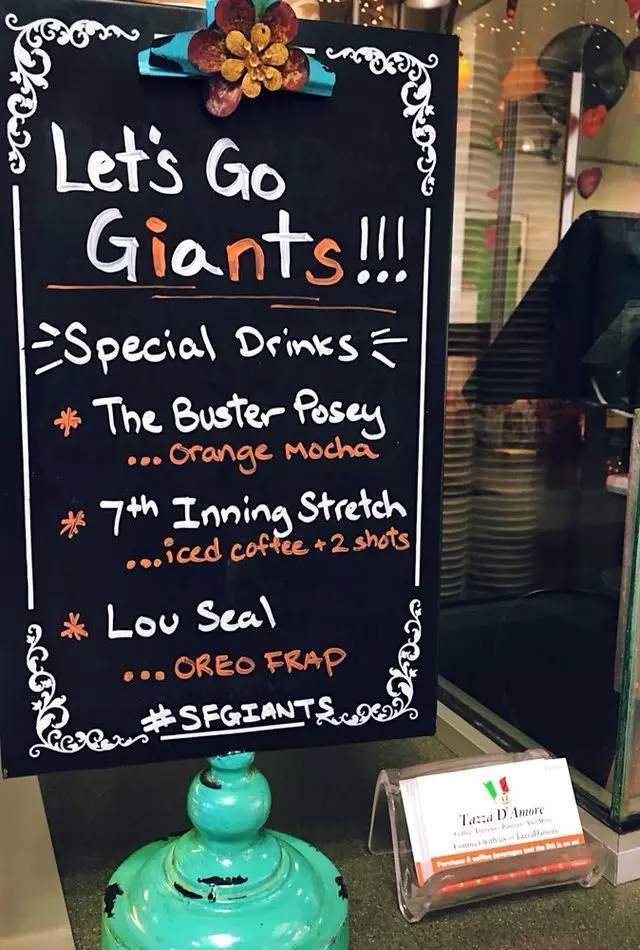 Let's Go
Giants!!!
Special Drinks
* The Buster Posey
... Orange Mocha
* 7th Inning Stretch
...iced coffee + 2 shots
* Lou Seal
... OREO FRAP
#SFGIANTS
Tazza D'Amore
Coffee, Espresso, Pastries, And More
Connect with us @ TazzaDamore
Purchase 8 coffee beverages and the 9th is on us!